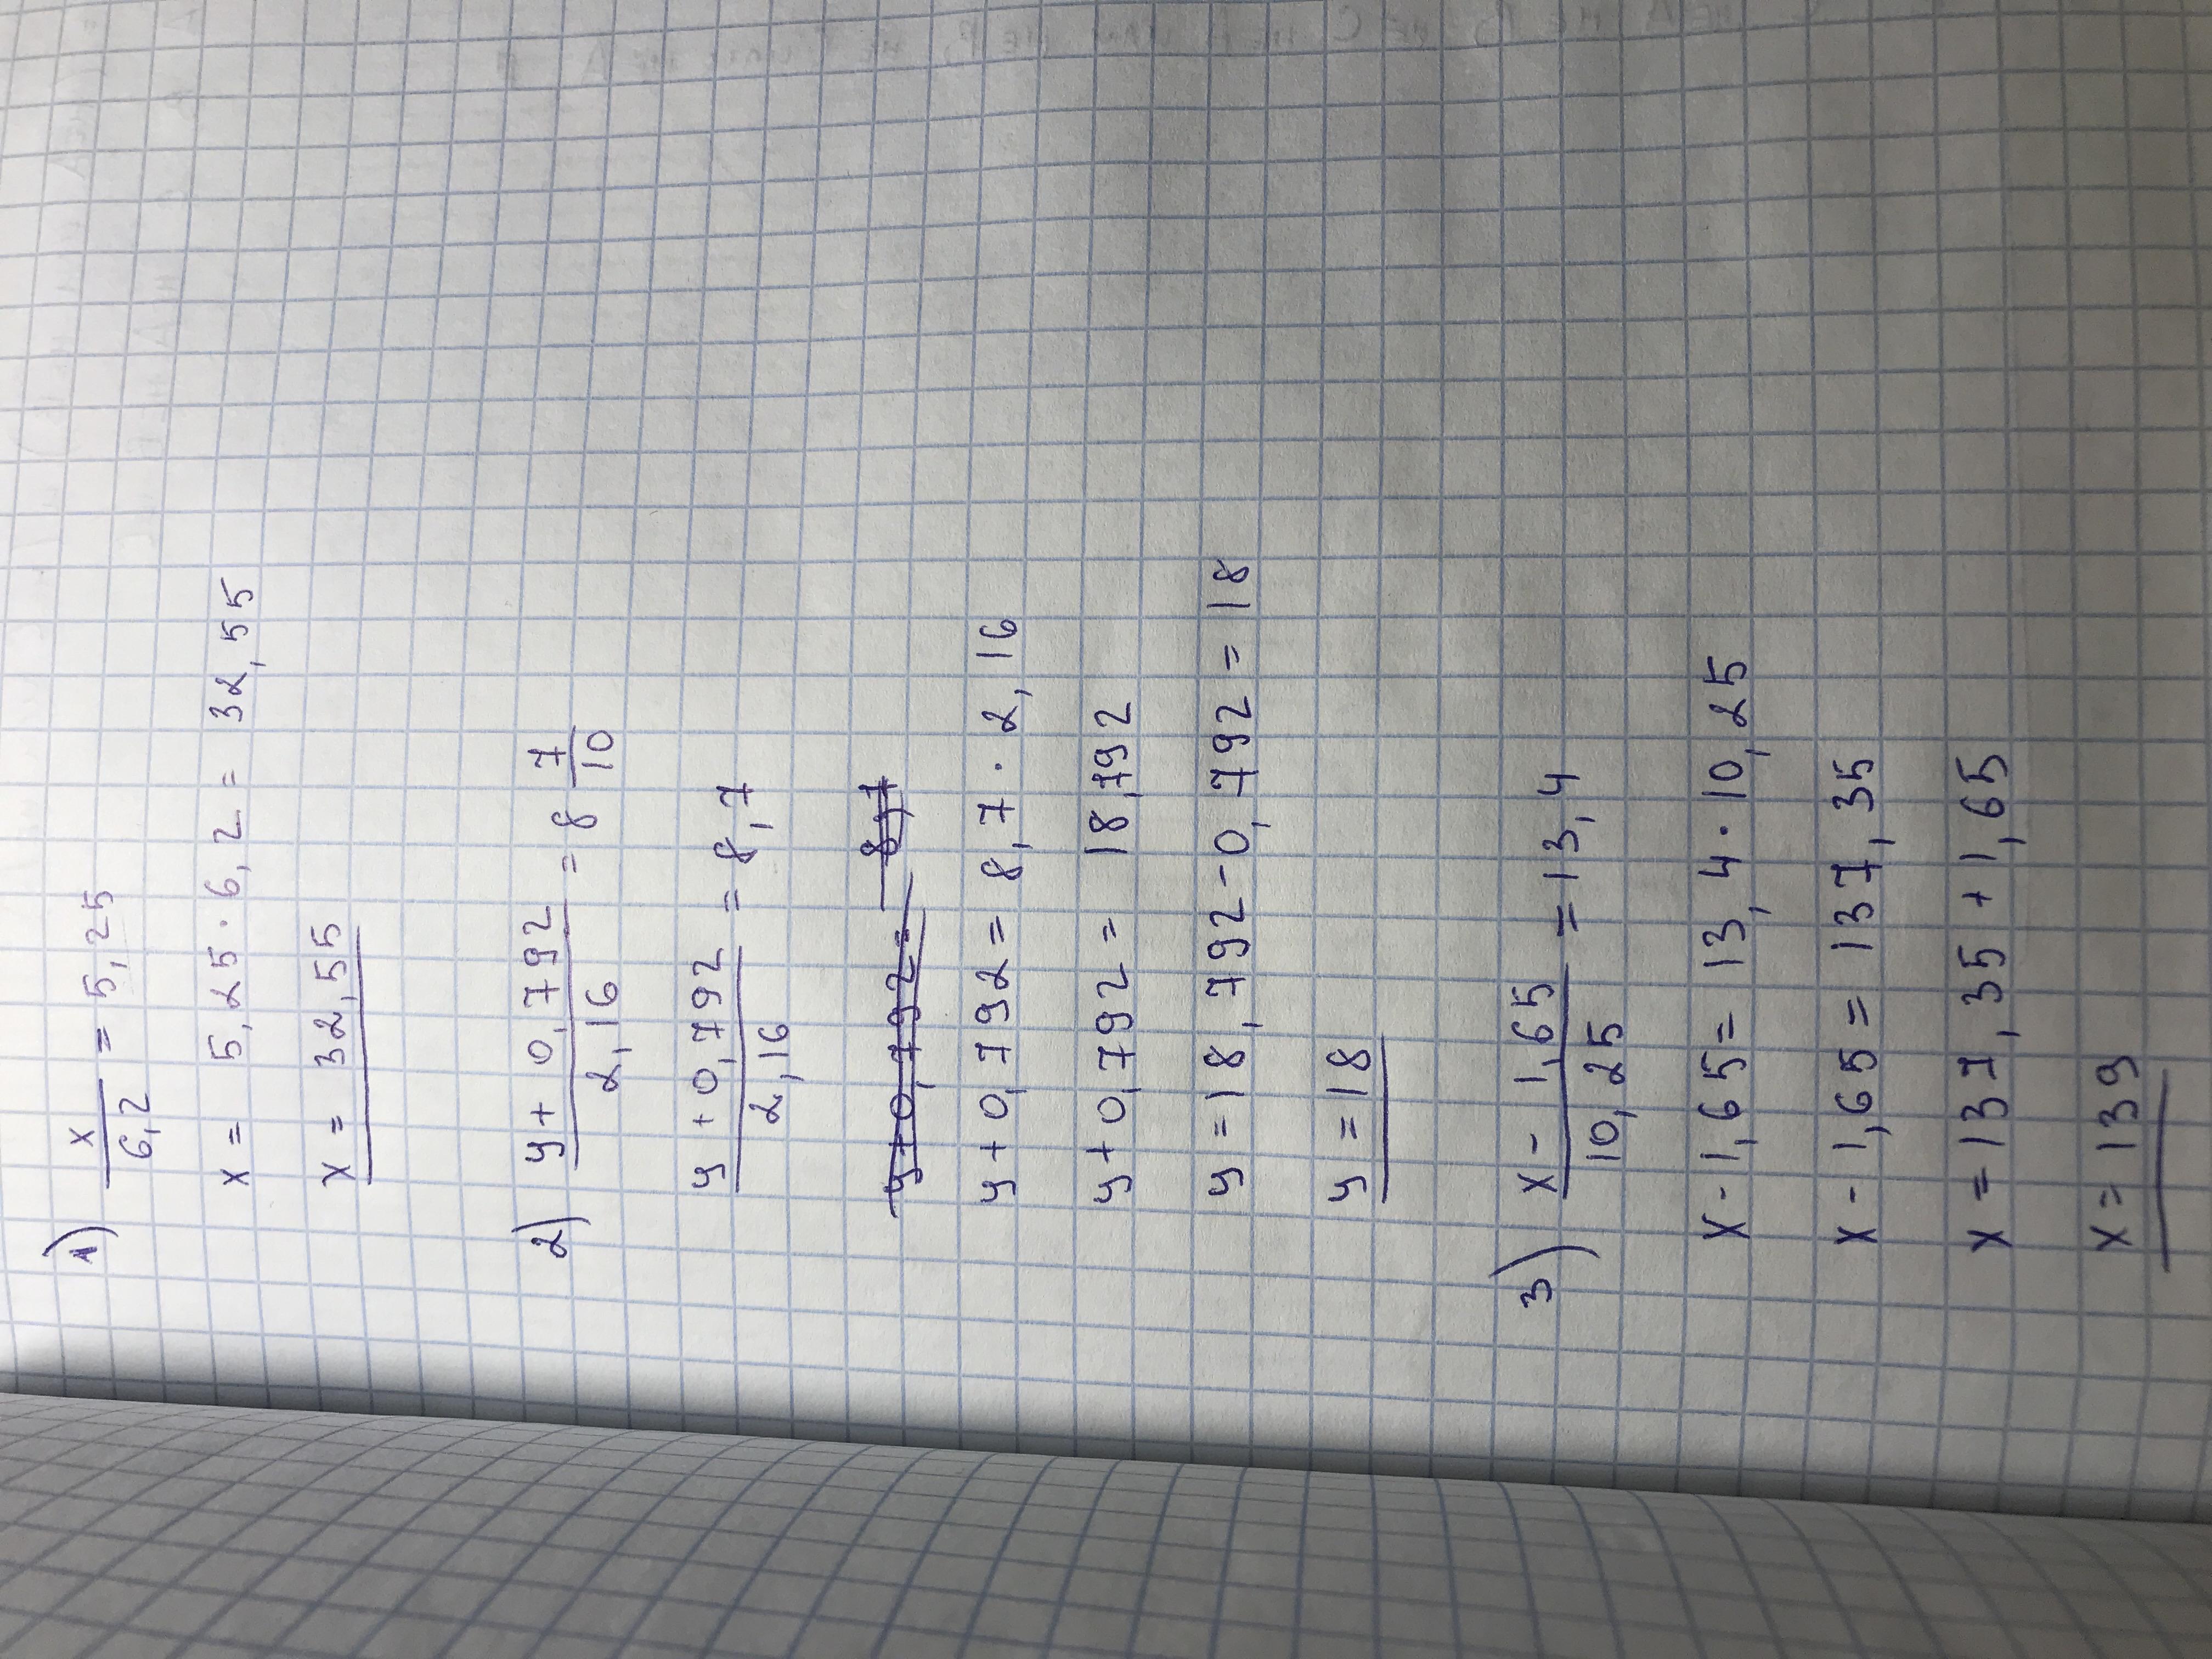 1) x/6,2 = 5,25
x = 5,25 · 6,2 = 32,55
x = 32,55
2) y + 0,792/2,16 = 8 7/10
y + 0,792/2,16 = 8,7
y + 0,792 = 8,7
y + 0,792 = 8,7 · 2,16
y + 0,792 = 18,792
y = 18,792 - 0,792 = 18
y = 18
3) x - 1,65/10,25 = 13,4
x - 1,65 = 13,4 · 10,25
x - 1,65 = 137,35
x = 137,35 + 1,65
x = 139